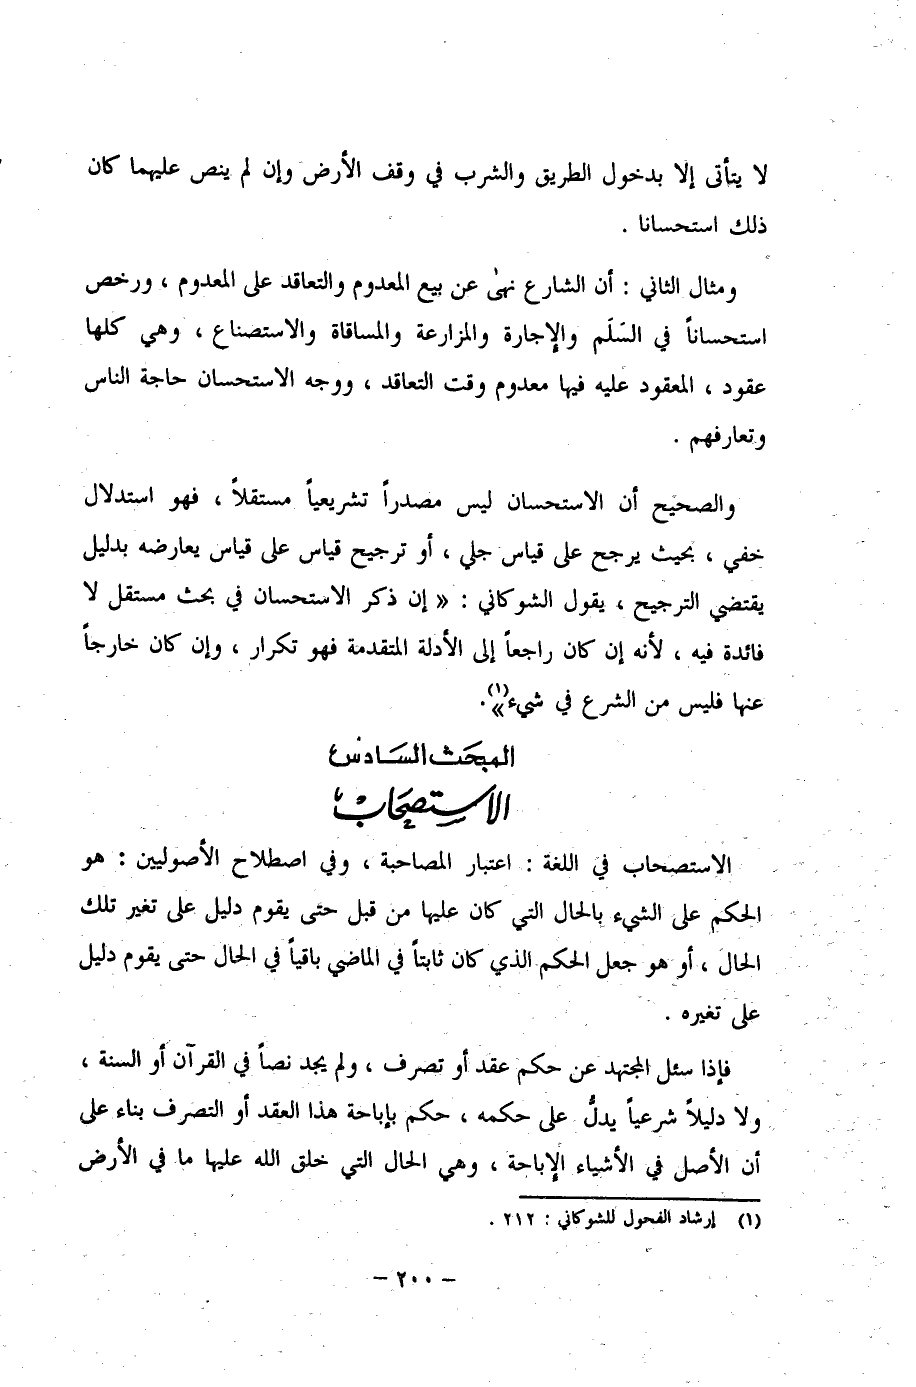 لا يتأتى إلا بدخول الطريق والشرب في وقف الأرض وإن لم ينص عليهما كان
ذلك استحسانا .
ومثال الثاني : أن الشارع نهىٰ عن بيع المعدوم والتعاقد على المعدوم ، ورخص
استحساناً في السَلَم والإجارة والمزارعة والمساقاة والاستصناع ، وهي كلها
عقود ، المعقود عليه فيها معدوم وقت التعاقد ، ووجه الاستحسان حاجة الناس
وتعارفهم .
والصحيح أن الاستحسان ليس مصدراً تشريعياً مستقلاً ، فهو استدلال
خفي ، بحيث يرجح على قياس جلي ، أو ترجيح قياس على قياس يعارضه بدليل
يقتضي الترجيح ، يقول الشوكاني : « إن ذكر الاستحسان في بحث مستقل لا
فائدة فيه ، لأنه إن كان راجعاً إلى الأدلة المتقدمة فهو تكرار ، وإن كان خارجاً
عنها فليس من الشرع في شيء»(١).
المبحث السادس
الاستصحاب
الاستصحاب في اللغة : اعتبار المصاحبة ، وفي اصطلاح الأصوليين : هو
الحكم على الشيء بالحال التي كان عليها من قبل حتى يقوم دليل على تغير تلك
الحال ، أو هو جعل الحكم الذي كان ثابتاً في الماضي باقياً في الحال حتى يقوم دليل
على تغيره .
فإذا سئل المجتهد عن حكم عقد أو تصرف ، ولم يجد نصاً في القرآن أو السنة ،
ولا دليلاً شرعياً يدلُّ على حكمه ، حكم بإباحة هذا العقد أو التصرف بناء على
أن الأصل في الأشياء الإباحة ، وهي الحال التي خلق الله عليها ما في الأرض
(١) إرشاد الفحول للشوكاني : ٢١٢ .
– ٢٠٠ –